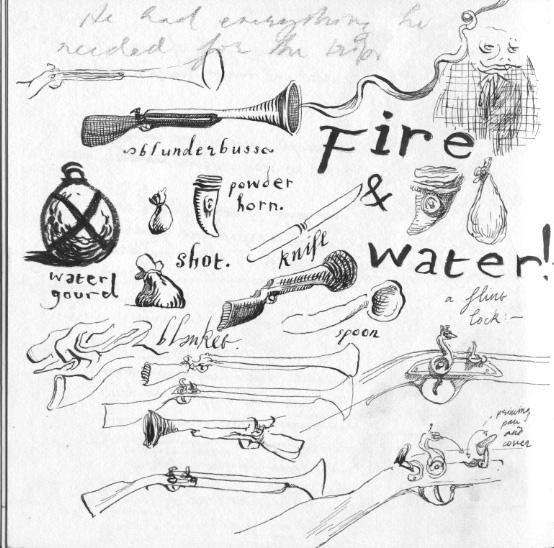 He had everything he
needed for the trip.
Fire
blunderbuss
&
powder
horn.
water!
shot.
knife
water
gourd
a flint
lock:-
spoon
blanket.
priming
pan
and
cover